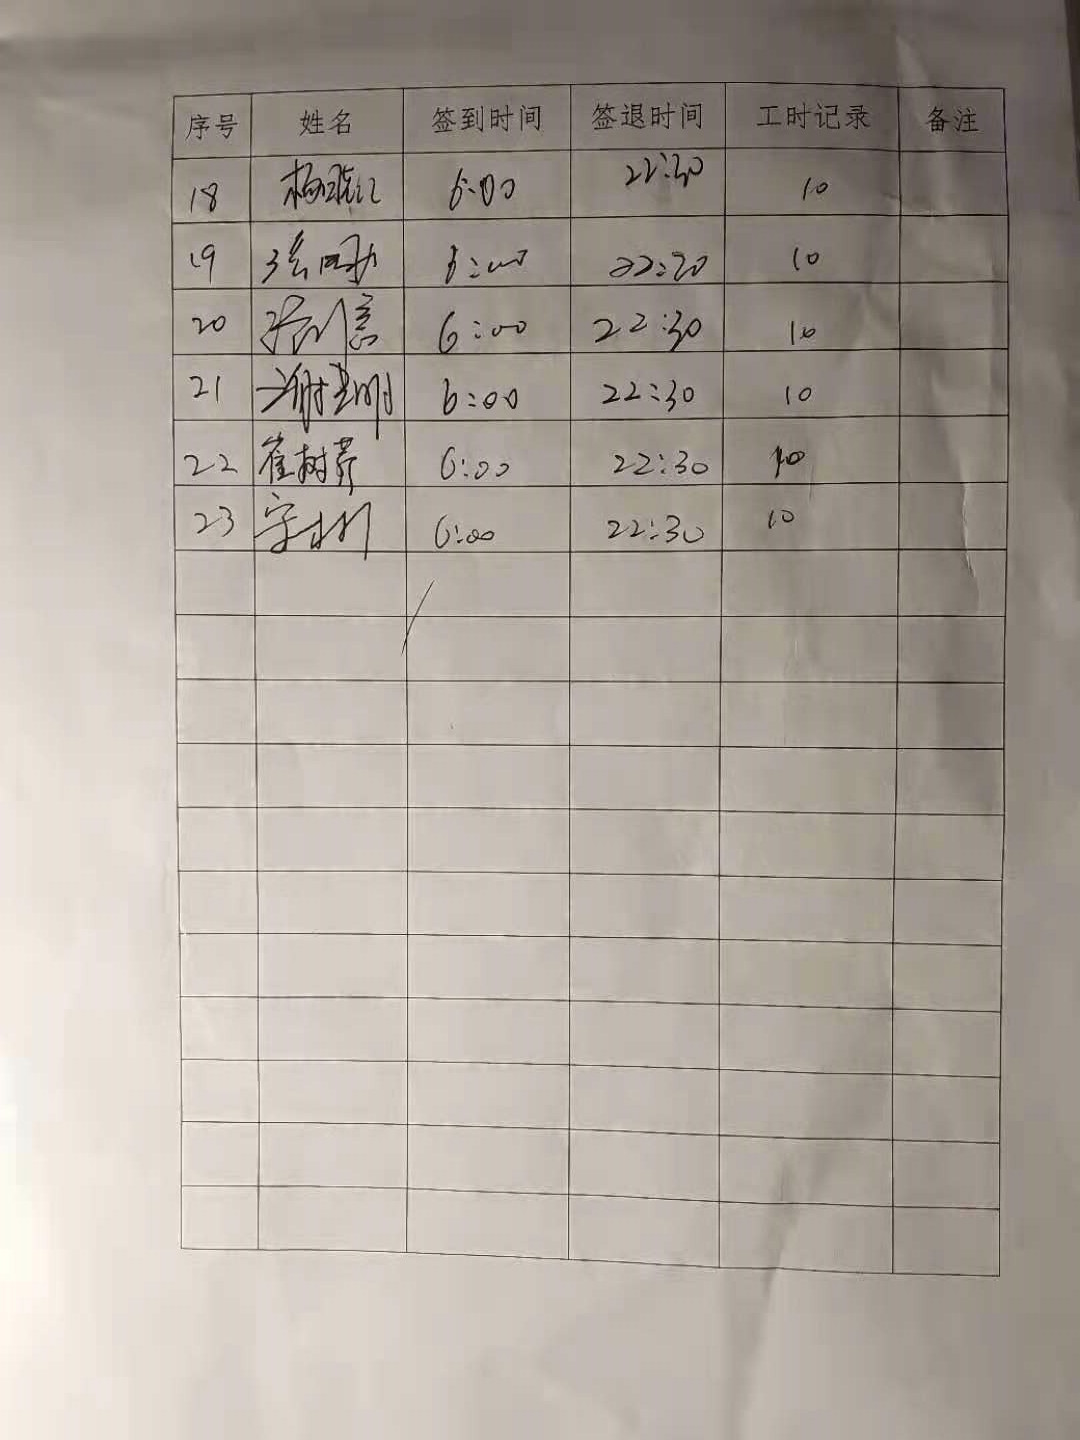 序号 姓名 签到时间 签退时间 工时记录 备注
18 6:00 22:30 10
19 6:00 22:30 10
20 6:00 22:30 10
21 谢 明 6:00 22:30 10
22 崔树 6:00 22:30 10
23 6:00 22:30 10